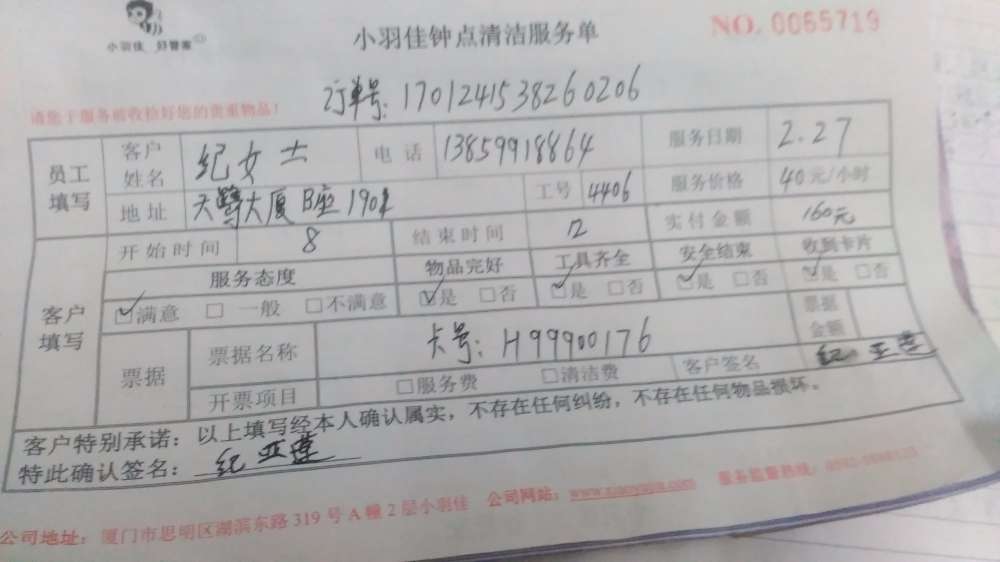 小羽佳 好管家
小羽佳钟点清洁服务单
NO. 0065719
请您于服务前收检好您的贵重物品!
订单号: 170124153826 0206
员工填写
客户姓名 纪女士 电话 13859918864 服务日期 2.27
地址 天鹭大厦B座1901 工号 4406 服务价格 40元/小时
客户填写
开始时间 8 结束时间 12 实付金额 160元
服务态度 物品完好 工具齐全 安全结束 收到卡片
☑满意 □一般 □不满意 ☑是 □否 ☑是 □否 ☑是 □否 ☑是 □否
票据 票据名称 卡号: H99900176 票据金额
开票项目 □服务费 □清洁费 客户签名 纪亚莲
客户特别承诺: 以上填写经本人确认属实，不存在任何纠纷，不存在任何物品损坏。
特此确认签名: 纪亚莲
公司地址: 厦门市思明区湖滨东路319号A幢2层小羽佳 公司网站: www.xiaoyujia.com 服务监督热线: